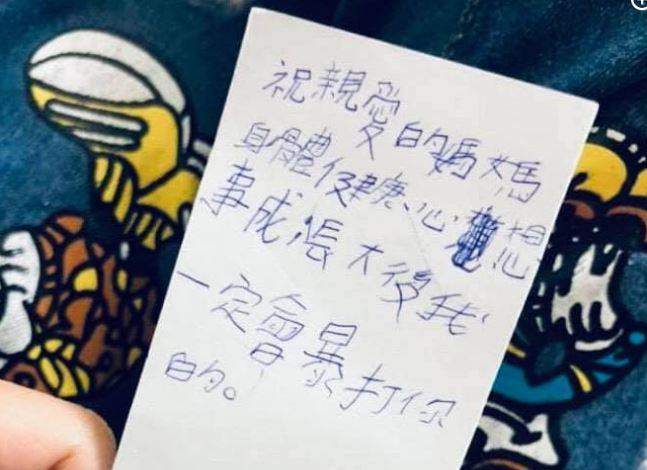 祝親愛的媽媽
身體健康心想
事成張大後我
一定會暴打你
的。